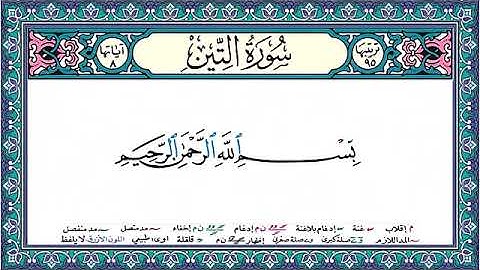 ترتيبها ٩٥
سُورَةُ التِّينِ
آياتها ٨
بِسْمِ ٱللَّهِ ٱلرَّحْمَٰنِ ٱلرَّحِيمِ
م إقلاب غنة إدغام بلاغنة ن م إدغام ن م إخفاء مد متصل مد منفصل
المد اللازم صلة كبرى وصلة صغرى إظهار ن م قلقلة طبيعي اللون الأزرق لا يلفظ